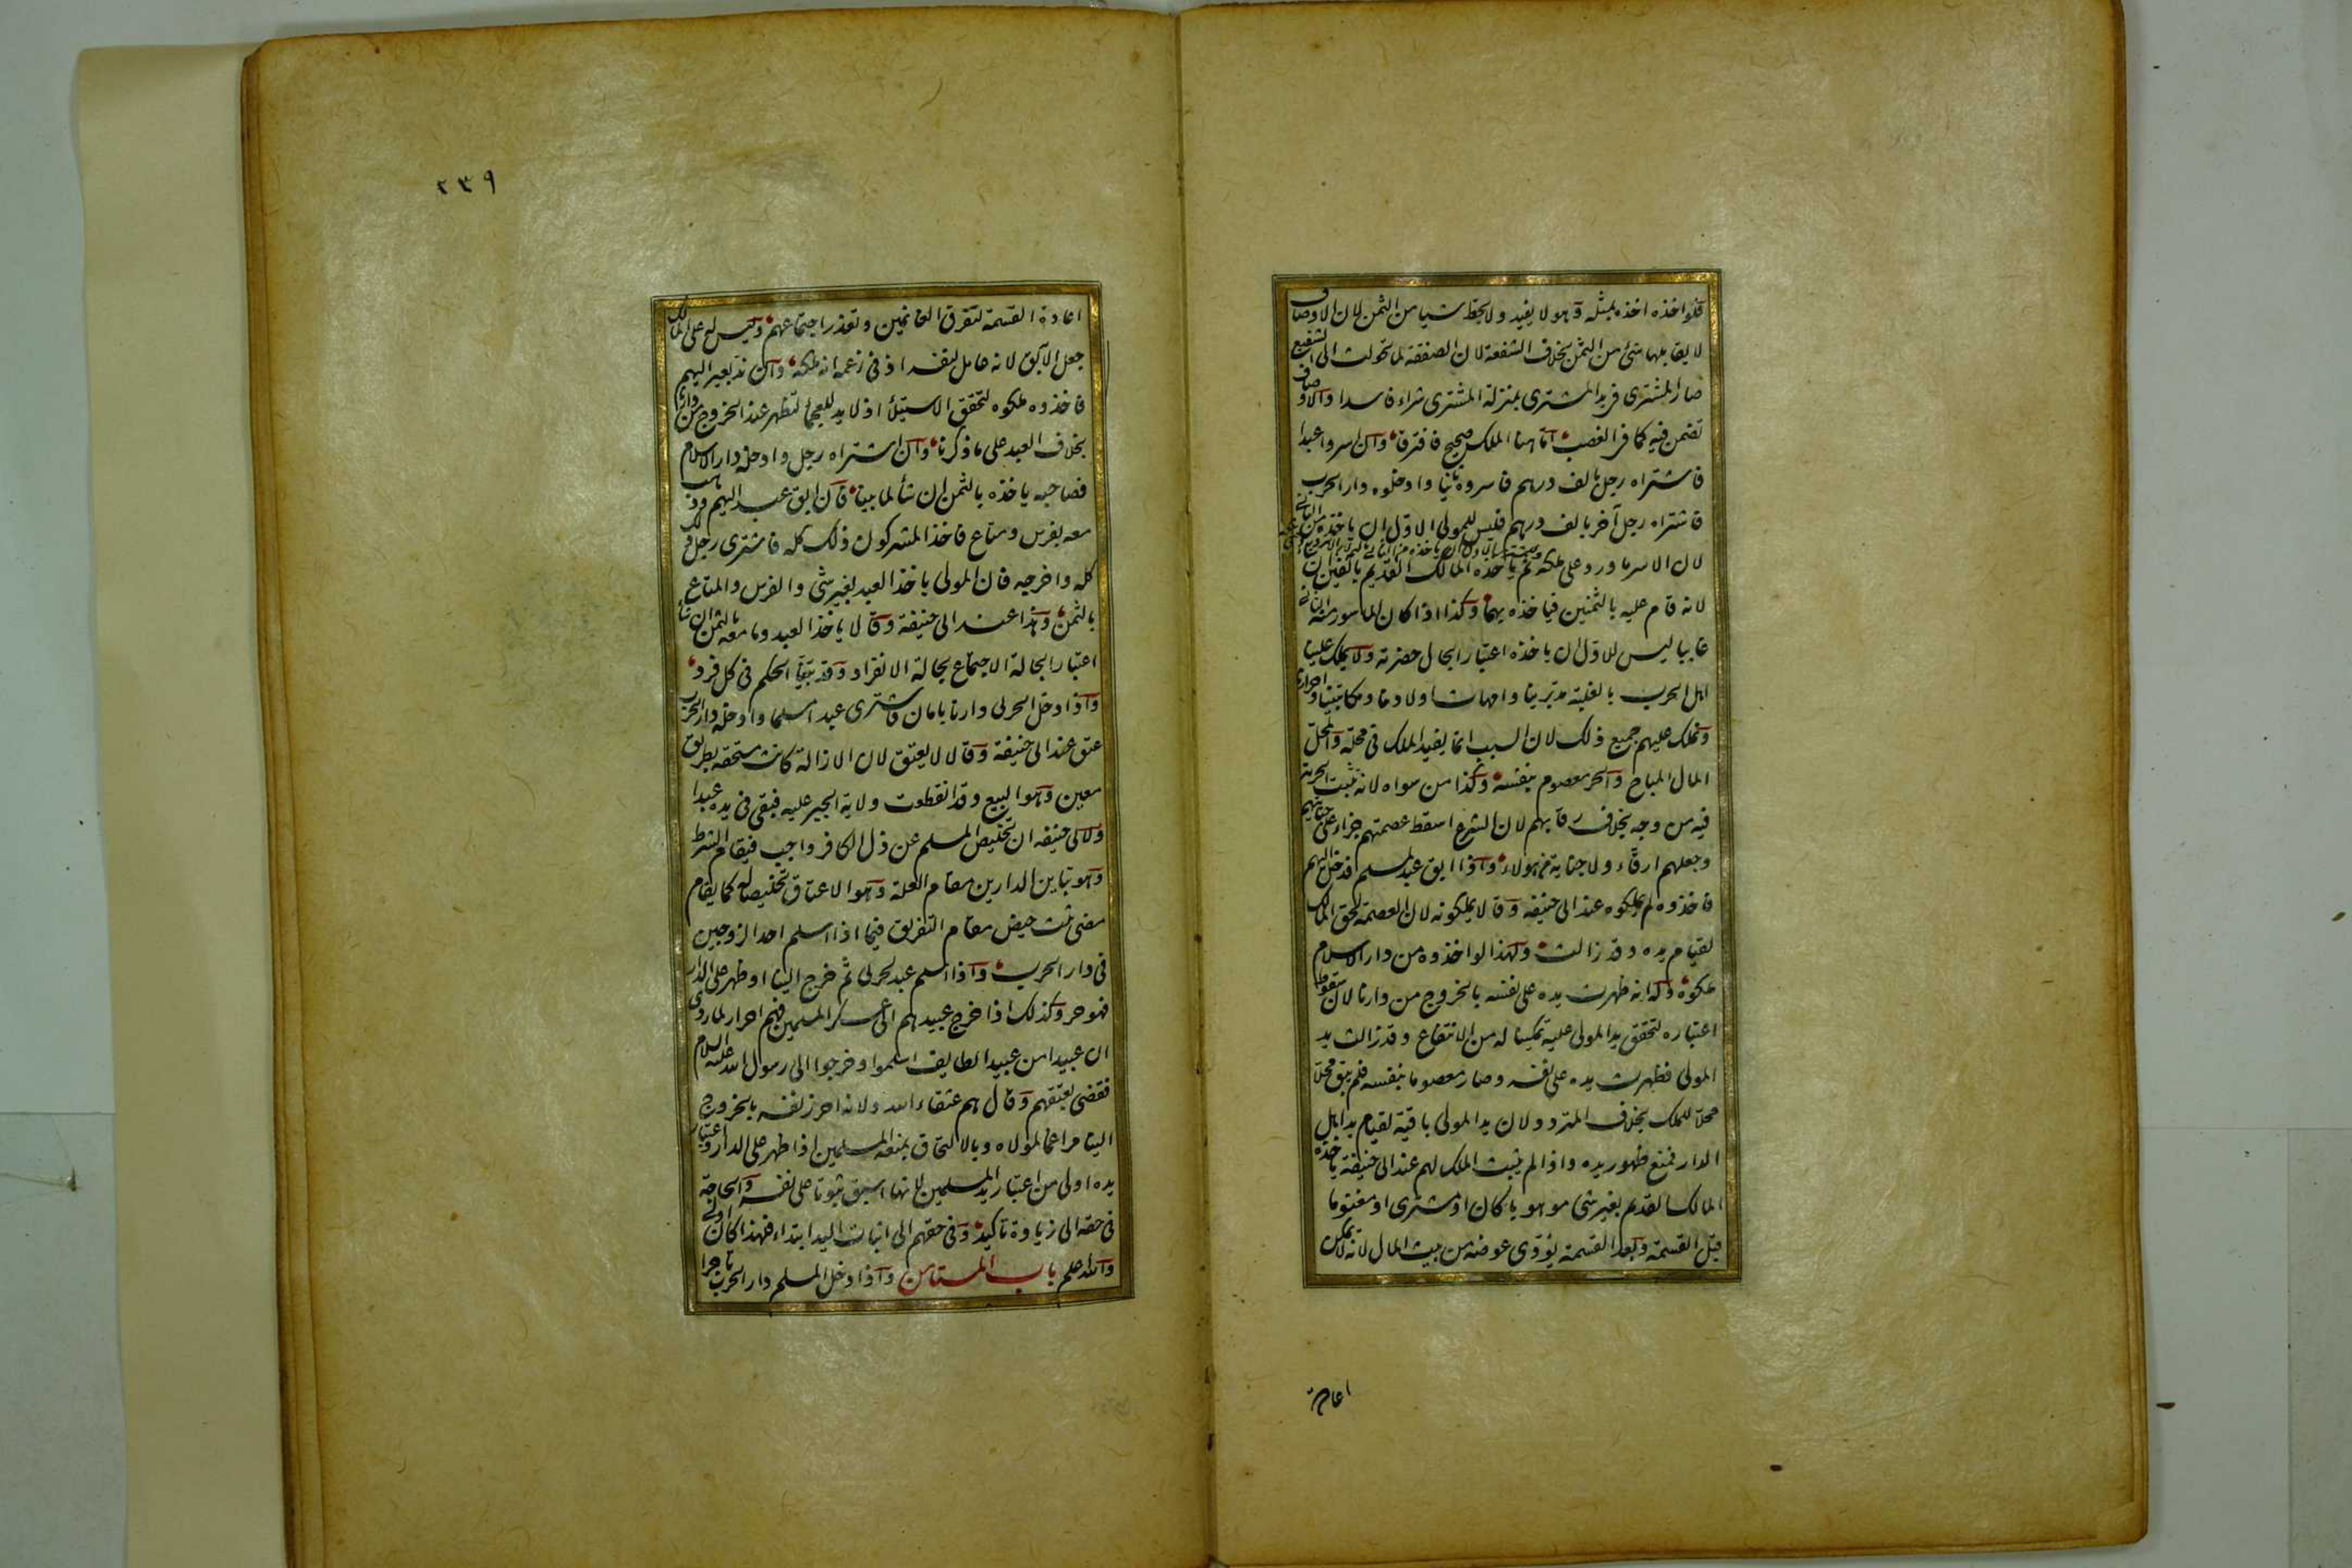 فلو اخذه اخذه بمثله وهو لا يفيد ولا يحط شيا من الثمن لان الاوصاف
لا يقابلها شئ من الثمن بخلاف الشفعة لان الصفقة لما تحولت الى الشفيع
صار المشترى فى يد المشترى بمنزلة المشترى شراء فاسدا والاوصاف
تضمن فيه كما فى الغصب اما ههنا الملك صحيح فافترقا وان اسروا عبدا
فاشتراه رجل بالف درهم فاسروه ثانيا وادخلوه دار الحرب
فاشتراه رجل آخر بالف درهم فليس للمولى الاول ان ياخذه من الثانى
لان الاسر ما ورد على ملكه ثم ياخذه المالك القديم بالفين ان
لانه قام عليه بالثمنين فياخذه بهما وكذا اذا كان الماسور منه الثانى
غايبا ليس للاول ان ياخذه اعتبارا بحال حضرته ولا يملك علينا
اهل الحرب بالغلبة مدبرينا وامهات اولادنا ومكاتبينا واحرارنا
ونملك عليهم جميع ذلك لان السبب انما يفيد الملك فى محله والمحل
المال المباح والحر معصوم بنفسه وكذا من سواه لانه تثبت الحرية
فيه من وجه بخلاف رقابهم لان الشرع اسقط عصمتهم جزاء على جنايتهم
وجعلهم ارقاء ولا جناية من هولاء واذا ابق عبد لمسلم فدخل اليهم
فاخذوه لم يملكوه عند ابى حنيفه وقالا يملكونه لان العصمة لحق المالك
لقيام يده وقد زالت ولهذا لو اخذوه من دار الاسلام
ملكوه وله انه ظهرت يده على نفسه بالخروج من دارنا لان سقوط
اعتباره لتحقق يد المولى عليه تمكينا له من الانتفاع وقد زالت يد
المولى فظهرت يده على نفسه وصار معصوما بنفسه فلم يبق محلا
محلا للملك بخلاف المتردد لان يد المولى باقية لقيام يد اهل
الدار فمنع ظهور يده واذا لم يثبت الملك لهم عند ابى حنيفة ياخذه
المالك القديم بغير شى موهوبا كان او مشترى او مغنوما
قبل القسمة وبعد القسمة يؤدى عوضه من بيت المال لانه لا يمكن
اعادة
٢٣٩
اعادة القسمة لتفرق الغانمين وتعذر اجتماعهم وليس له على المالك
جعل الآبق لانه عامل لنفسه اذ فى زعمه انه ملكه وان ند بعير اليهم
فاخذوه ملكوه لتحقق الاستيلا اذ لا يد للعجماء لتظهر عند الخروج من دارنا
بخلاف العبد على ما ذكرنا وان اشتراه رجل وادخله دار الاسلام
فصاحبه ياخذه بالثمن ان شأ لما بينا فان ابق عبد اليهم وذهب
معه بفرس ومتاع فاخذ المشركون ذلك كله فاشترى رجل ذلك
كله واخرجه فان المولى ياخذ العبد بغير شى والفرس والمتاع
بالثمن وهذا عند ابى حنيفة وقالا ياخذ العبد وما معه بالثمن ان شأ
اعتبارا بحالة الاجتماع بحالة الانفراد وقد بينا الحكم فى كل فرد
واذا دخل الحربى دارنا بامان فاشترى عبدا مسلما وادخله دار الحرب
عتق عند ابى حنيفة وقالا لا يعتق لان الازالة كانت مستحقه بطريق
معين وهو البيع وقد انقطعت ولاية الجبر عليه فبقى فى يده عبدا
ولابى حنيفه ان تخليص المسلم عن ذل الكافر واجب فيقام الشرط
وهو تباين الدارين مقام العلة وهو الاعتاق تخليصا له كما يقام
مضى ثلث حيض مقام التفريق فيما اذا اسلم احد الزوجين
فى دار الحرب واذا اسلم عبد لحربى ثم خرج الينا او ظهر على الدار
فهو حر وكذلك اذا خرج عبيدهم الى عسكر المسلمين فهم احرار لما روى
ان عبيدا من عبيد الطايف اسلموا وخرجوا الى رسول الله عليه السلام
فقضى بعتقهم وقال هم عتقاء الله ولانه احرز نفسه بالخروج
الينا مراغما لمولاه وبالالتحاق بمنعه المسلمين اذا ظهر على الدار واعتبار
يده اولى من اعتبار يد المسلمين لانها اسبق ثبوتا على نفسه والحاجة
فى حقه الى زيادة تاكيد وفى حقهم الى اثبات اليد ابتداء فلهذا كان اولى
والله اعلم باب المستامن واذا دخل المسلم دار الحرب تاجرا